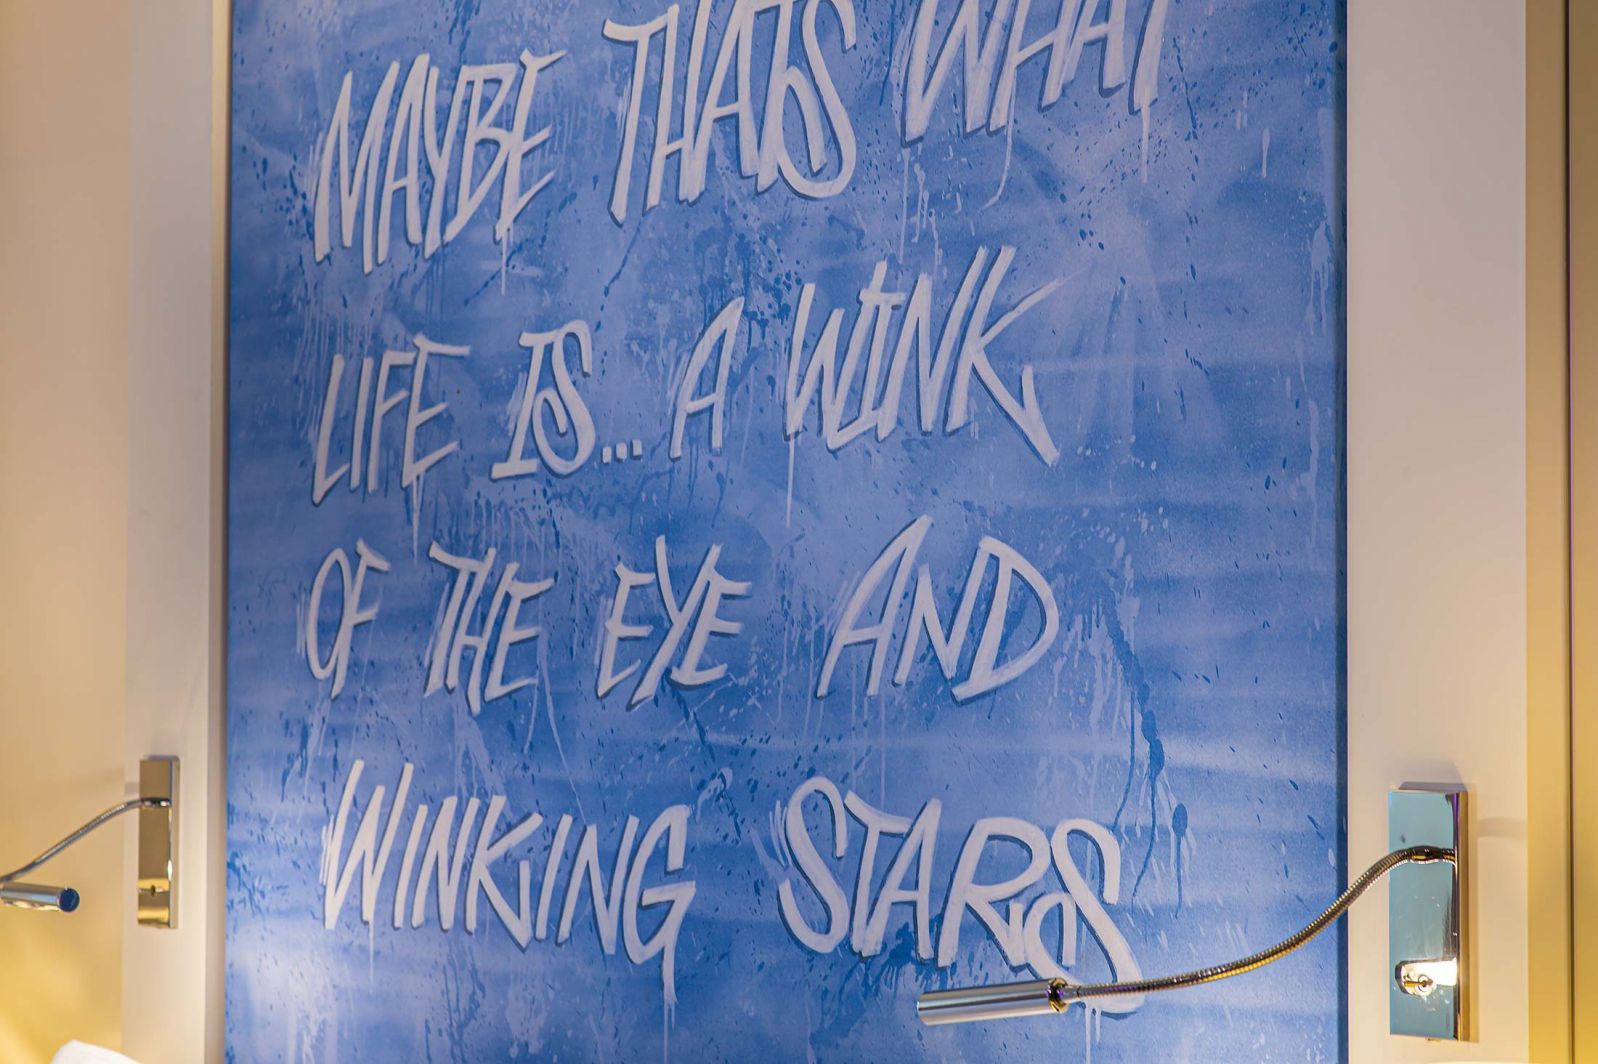 MAYBE THATS WHAT
LIFE IS... A WINK
OF THE EYE AND
WINKING STARS